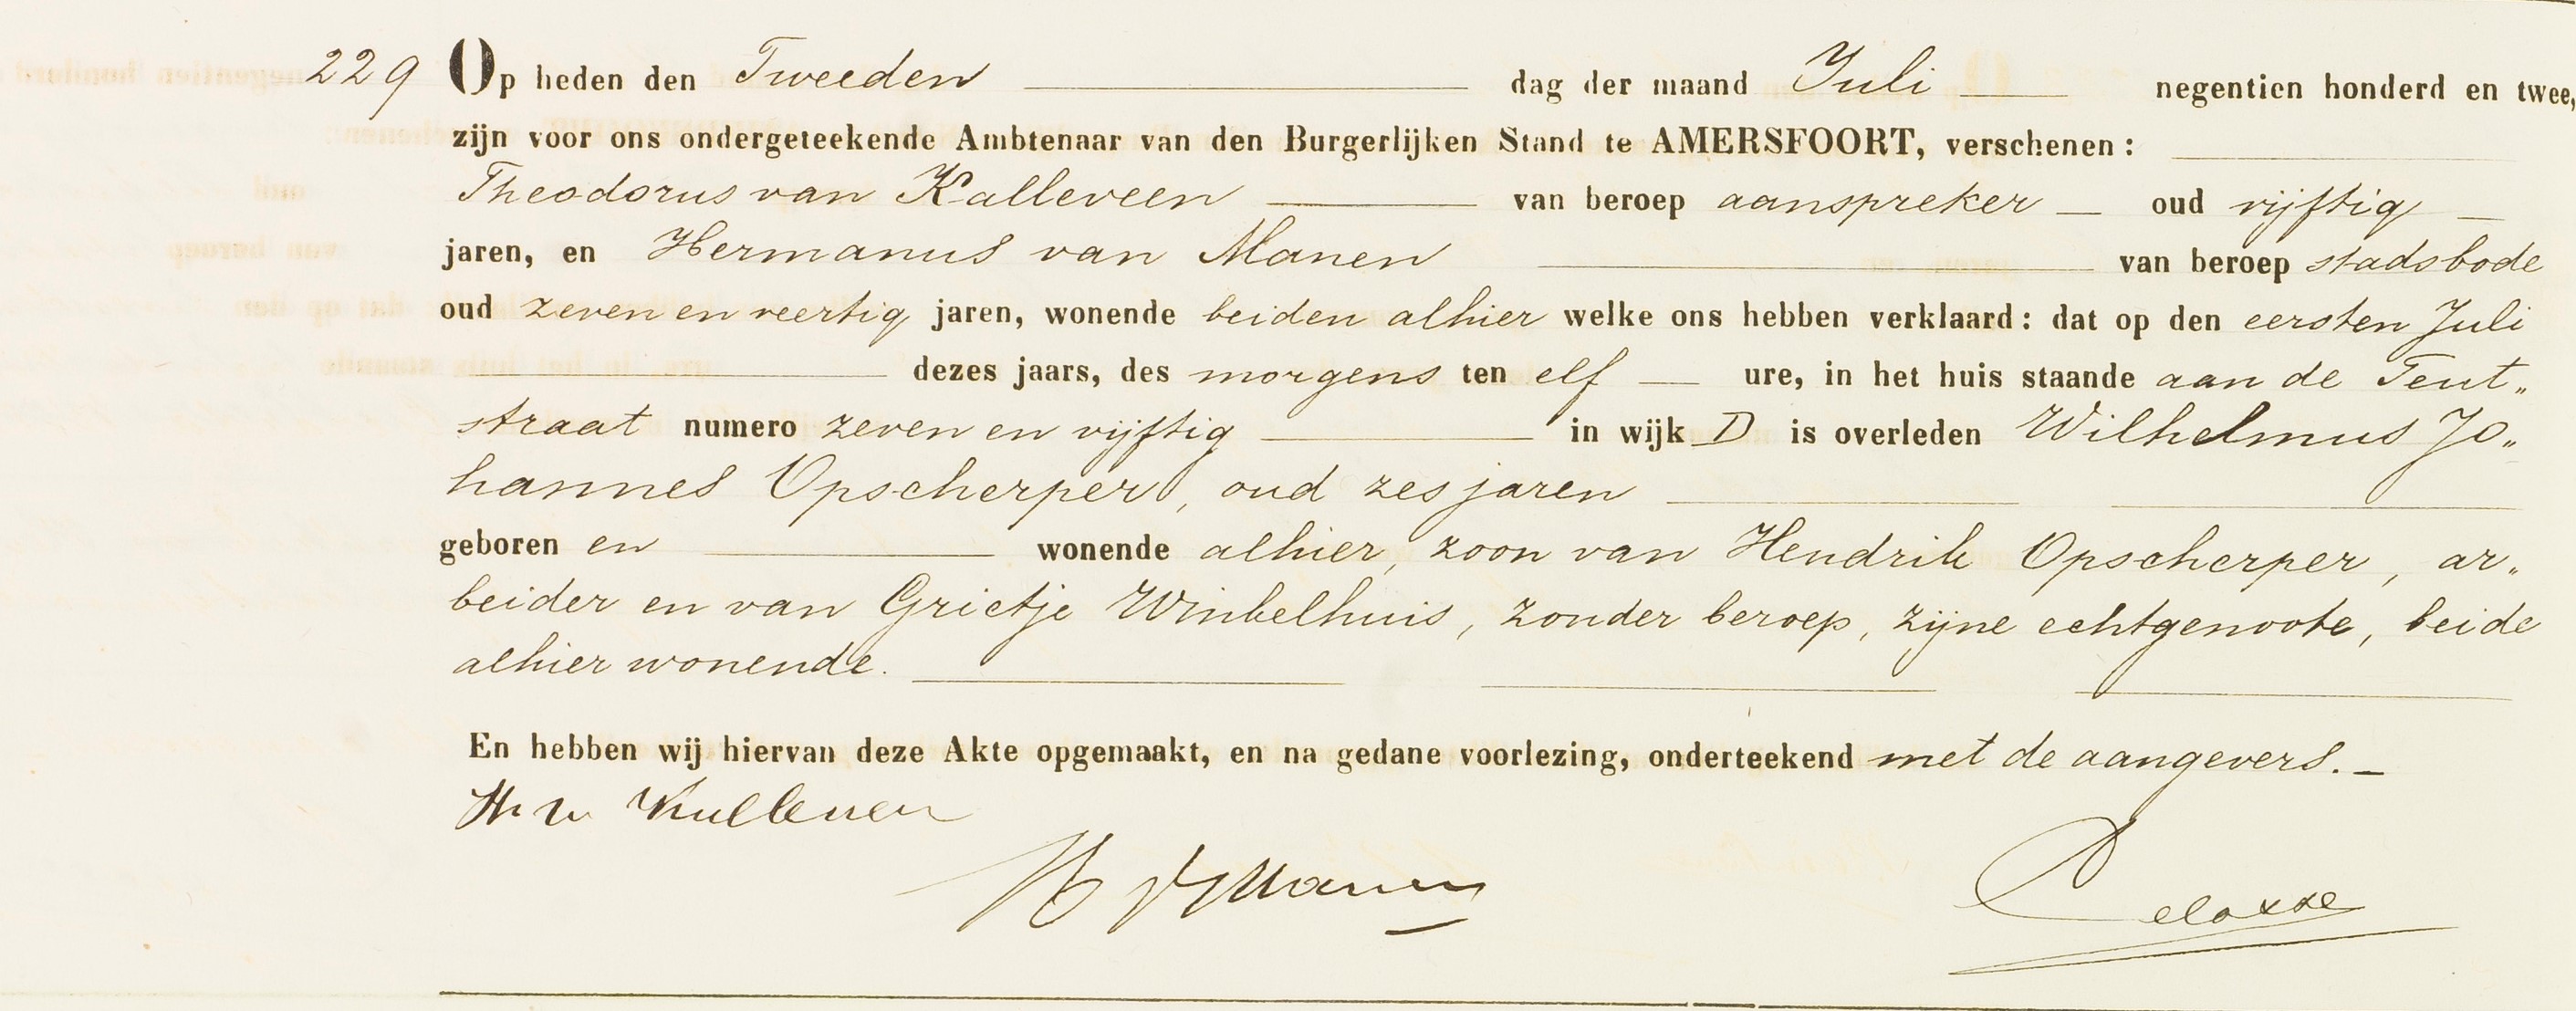 229 Op heden den Tweeden dag der maand Juli negentien honderd en twee,
zijn voor ons ondergeteekende Ambtenaar van den Burgerlijken Stand te AMERSFOORT, verschenen:
Theodorus van Kalleveen van beroep aanspreker oud vijftig
jaren, en Hermanus van Manen van beroep stadsbode
oud zeven en veertig jaren, wonende beiden alhier welke ons hebben verklaard: dat op den eersten Juli
dezes jaars, des morgens ten elf ure, in het huis staande aan de Teut„
straat numero zeven en vijftig in wijk D is overleden Wilhelmus Jo„
hannes Opscherper, oud zes jaren
geboren en wonende alhier, zoon van Hendrik Opscherper, ar„
beider en van Grietje Winkelhuis, zonder beroep, zijne echtgenoote, beide
alhier wonende.
En hebben wij hiervan deze Akte opgemaakt, en na gedane voorlezing, onderteekend met de aangevers.
H v Manen